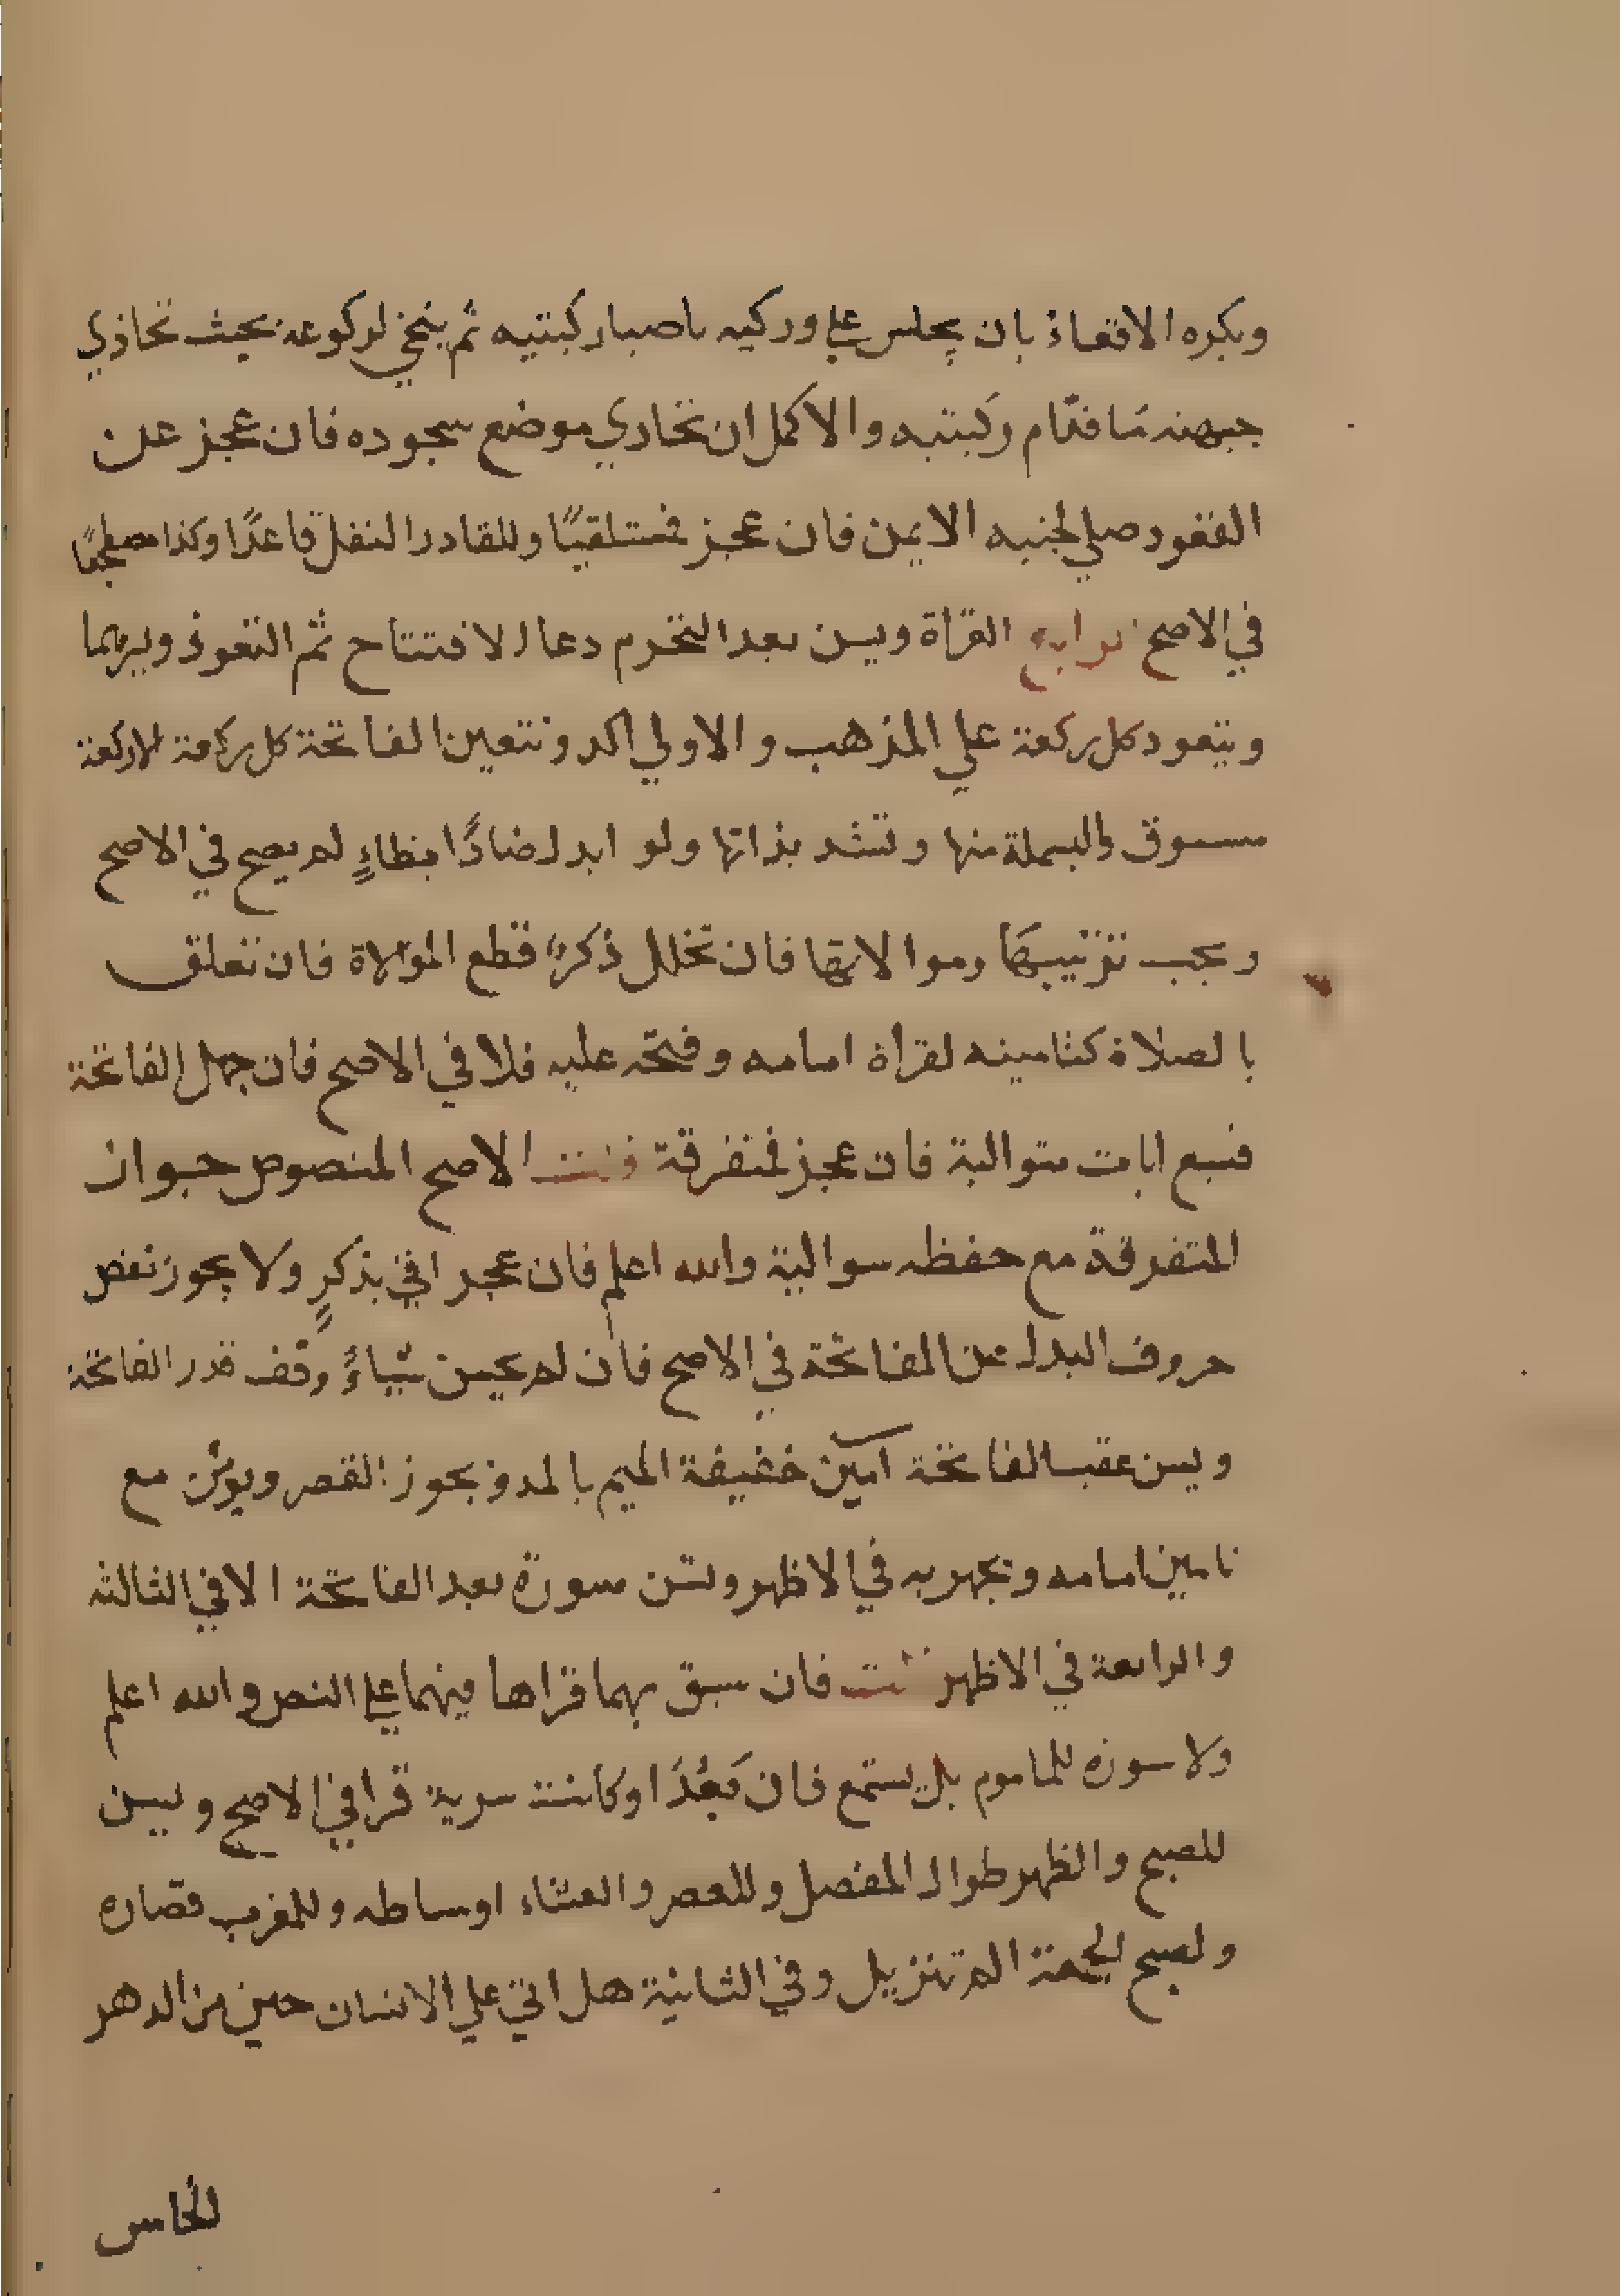 ويكره الاقعاء بان يجلس علي وركيه ناصبا ركبتيه ثم ينحني لركوعه بحيث تحاذي
جبهته مَا قدّام ركبتيه والاكمل ان تحاذي موضع سجوده فان عجز عن
القعود صلي لجنبه الايمن فان عجز فمستلقيًا وللقادر النفل قاعدًا وكذا مضطجعًا
في الاصح الرابع القرأة ويسن بعد التحرم دعا الافتتاح ثم التعوذ ويسرهما
ويتعوذ كل ركعة علي المذهب والاولي اكد وتتعين الفاتحة كل ركعة الا ركعة
مسبوق والبسملة منها وتشديداتها ولو ابدل ضادًا بظاءٍ لم يصح في الاصح
ويجب ترتيبهَا وموالاتها فان تخلل ذكر قطع الموالاة فان تعلق
بالصلاة كتامينه لقرأة امامه وفتحه عليه فلا في الاصح فان جهل الفاتحة
فسبع ايات متوالية فان عجز فمتفرقة قلت الاصح المنصوص جواز
المتفرقة مع حفظه متوالية والله اعلم فان عجز اتي بذكرٍ ولا يجوز نقص
حروف البدل عن الفاتحة في الاصح فان لم يحسن شياءً وقف قدر الفاتحة
ويسن عقب الفاتحة آمين خفيفة الميم بالمد ويجوز القصر ويومّن مع
تامين امامه ويجهر به في الاظهر وتسن سورة بعد الفاتحة الا في الثالثه
والرابعة في الاظهر قلت فان سبق بهما قراها فيهما علي النص والله اعلم
ولا سورة للماموم بل يستمع فان بَعُدَ او كانت سرية قرا في الاصح ويسن
للصبح والظهر طوال المفصل وللعصر والعشاء اوساطه وللمغرب قصاره
ولصبح الجمعة الم تنزيل وفي الثانية هل اتي علي الانسان حين من الدهر
الخامس